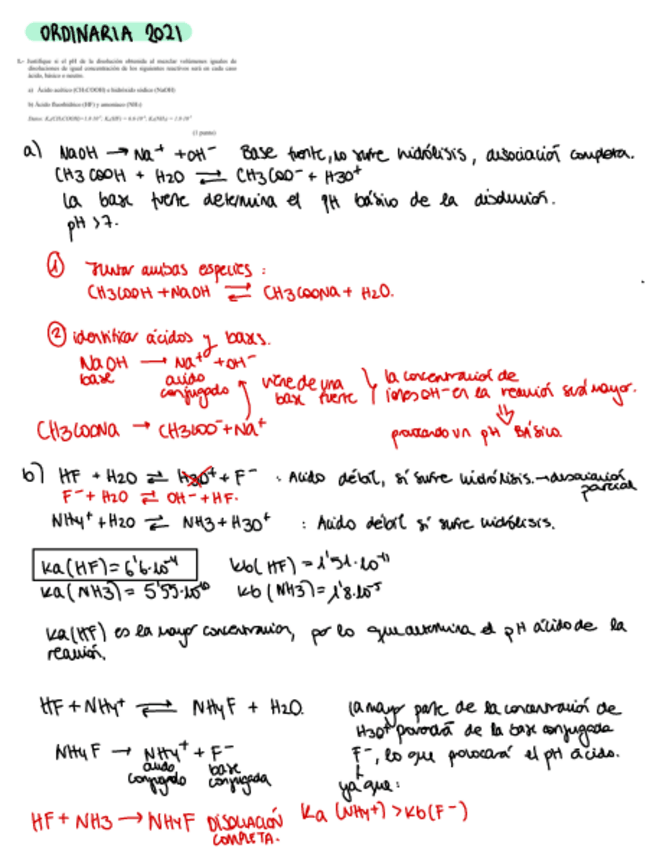 ORDINARIA 2021
5.- Justifique si el pH de la disolución obtenida al mezclar volúmenes iguales de
disoluciones de igual concentración de los siguientes reactivos será en cada caso
ácido, básico o neutro.
a) Ácido acético (CH₃COOH) e hidróxido sódico (NaOH)
b) Ácido fluorhídrico (HF) y amoniaco (NH₃)
(1 punto)
a) NaOH → Na⁺ + OH⁻ Base fuerte, no sufre hidrólisis, disociación completa.
CH3COOH + H2O ⇌ CH3COO⁻ + H3O⁺
La base fuerte determina el pH básico de la disolución.
pH > 7.
① Juntar ambas especies :
CH3COOH + NaOH ⇌ CH3COONa + H2O.
② identificar ácidos y bases.
NaOH → Na⁺ + OH⁻
base ácido conjugado
viene de una base fuerte
la concentración de
iones OH⁻ en la reacción será mayor.
⇓
CH3COONa → CH3COO⁻ + Na⁺
pH BÁSICO.
b) HF + H2O ⇌ H3O⁺ + F⁻ : Ácido débil, sí sufre hidrólisis. → disociación parcial
F⁻ + H2O ⇌ OH⁻ + HF.
NH4⁺ + H2O ⇌ NH3 + H3O⁺ : Ácido débil sí sufre hidrólisis.
Ka(HF) = 6'6·10⁻⁴ Kb(HF) = 1'51·10⁻¹¹
Ka(NH3) = 5'55·10⁻¹⁰ Kb(NH3) = 1'8·10⁻⁵
Ka(HF) es la mayor concentración, por lo que determina el pH ácido de la
reacción.
HF + NH4⁺ ⇌ NH4F + H2O.
NH4F → NH4⁺ + F⁻
ácido conjugado base conjugada
la mayor parte de la concentración de
H3O⁺ procederá de la base conjugada
F⁻, lo que provocará el pH ácido.
ya que:
HF + NH3 → NH4F DISOLUCIÓN COMPLETA. Ka (NH4⁺) > Kb(F⁻)